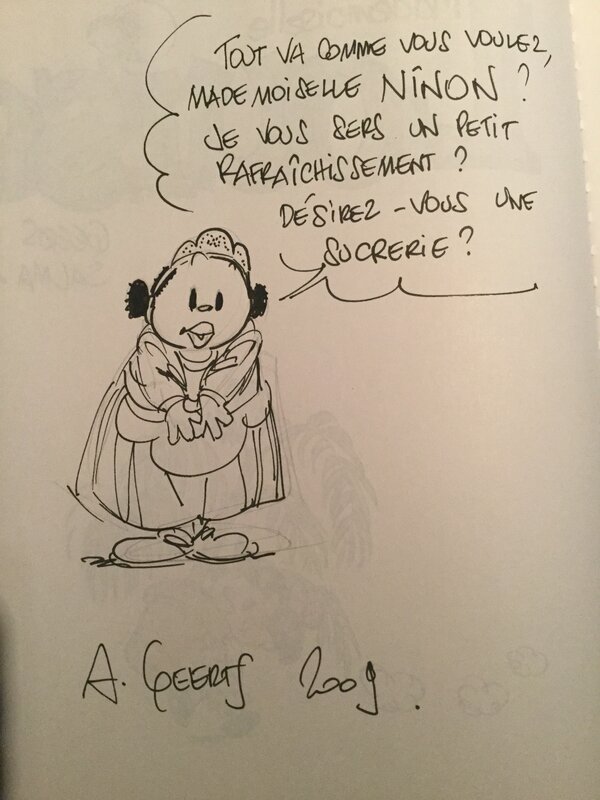 TOUT VA COMME VOUS VOULEZ,
MADEMOISELLE NÎNON ?
JE VOUS SERS UN PETIT
RAFRAÎCHISSEMENT ?
DÉSIREZ-VOUS UNE
SUCRERIE ?
A. GEERTS 2009.